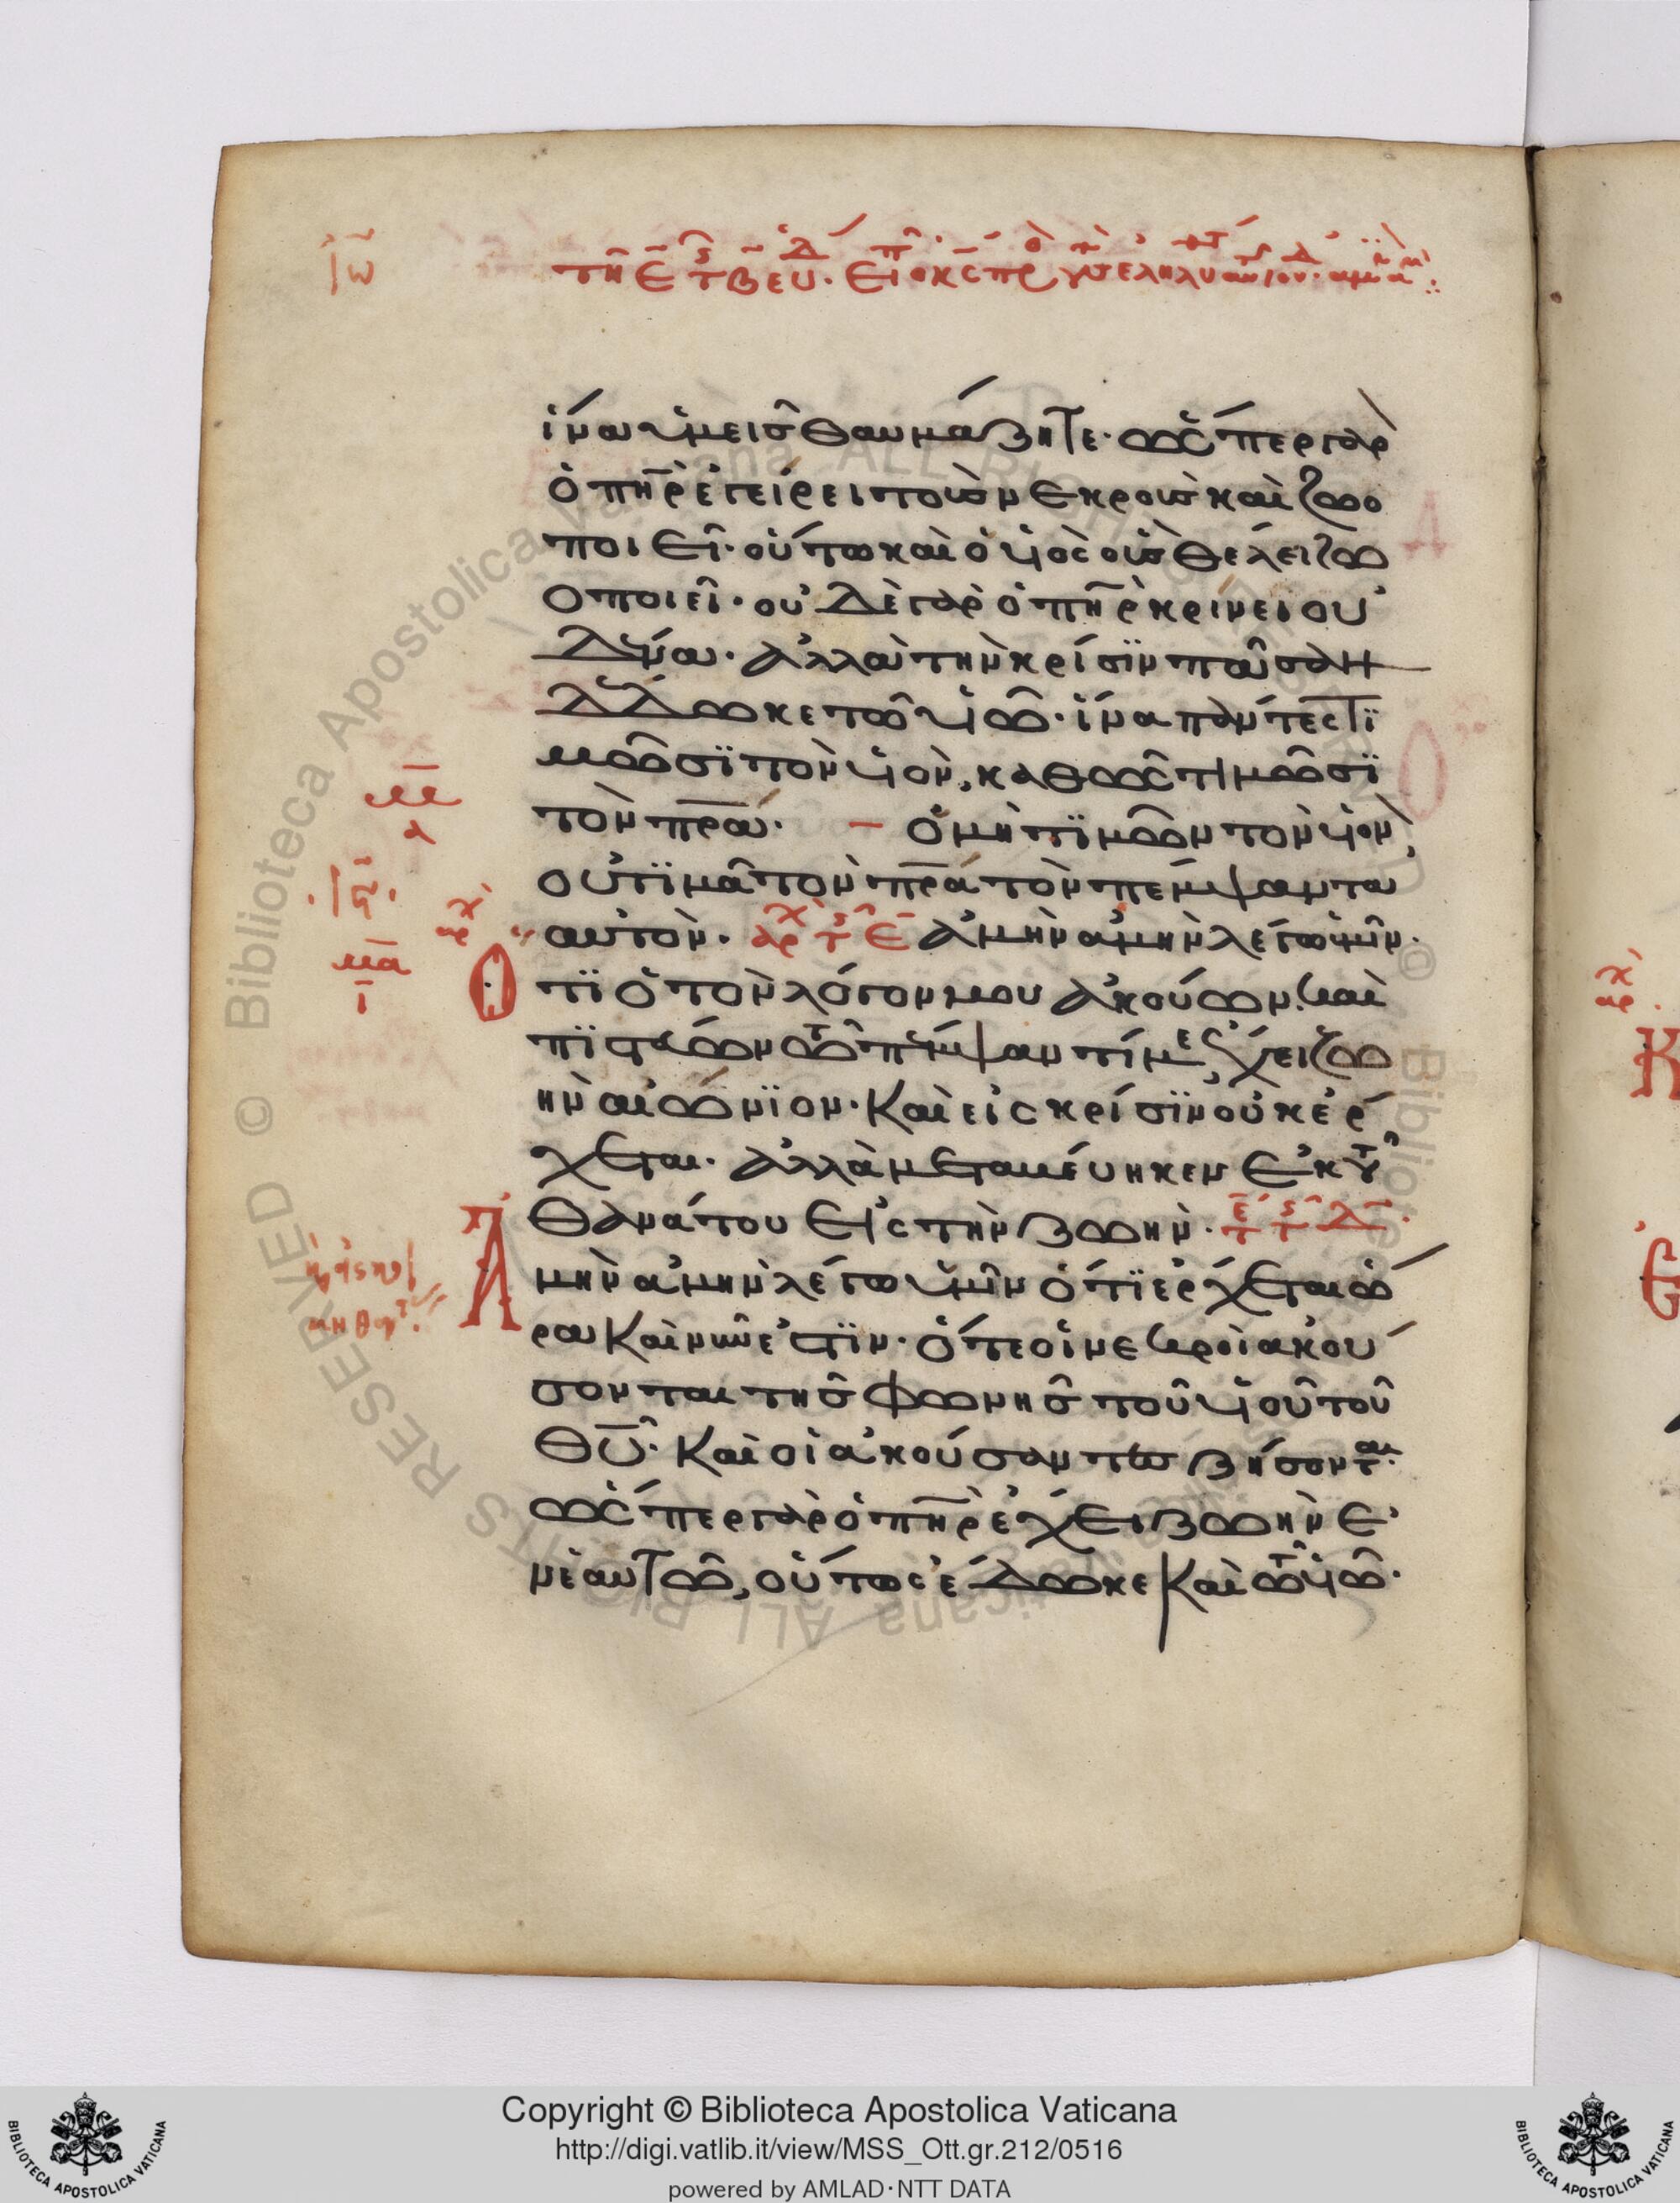 ἵνα ὑμεῖς θαυμάζητε· ὥσπερ γὰρ
ὁ πηρ ἐγείρει τοὺς νεκροὺς καὶ ζωο
ποιεῖ· οὕτω καὶ ὁ υἱὸς οὓς θέλει ζω
οποιεῖ· οὐδὲ γὰρ ὁ πηρ κρίνει οὐ
δένα· ἀλλὰ τὴν κρίσϊν πᾶσαν
δέδωκε τῶ υἱῶ· ἵνα πάντες τϊ
μῶσϊ τὸν υἱὸν, καθὼς τιμῶσϊ
τὸν πρα· ὁ μὴ τϊμῶν τὸν υἱὸν,
οὐ τϊμᾶ τὸν πρα τὸν πέμψαντα
αὐτὸν· ἀμὴν ἀμὴν λέγω ὑμῖν·
τϊ ὁ τὸν λόγον μου ἀκούων. καὶ
πϊστεύων τῶ πέμψαντί με, ἔχει ζω
ὴν αἰώνϊον· Καὶ εἰς κρίσϊν οὐκ ἔρ
χεται· ἀλλὰ μεταβέβηκεν ἐκ τοῦ
θανάτου εἰς τὴν ζωὴν·
μὴν ἀμὴν λέγω ὑμῖν ὅτϊ ἔρχεται ὥ
ρα Καὶ νῦν ἐστϊν· ὅτε οἱ νεκροὶ ἀκού
σονται τῆς φωνῆς τοῦ υἱοῦ τοῦ
θυ· Καὶ οἱ ἀκούσαντες ζήσονται·
ὥσπερ γὰρ ὁ πηρ ἔχει ζωὴν ἐ
ν ἑαυτῶ, οὕτως ἔδωκε Καὶ τῶ υἱῶ·
Copyright © Biblioteca Apostolica Vaticana
http://digi.vatlib.it/view/MSS_Ott.gr.212/0516
powered by AMLAD·NTT DATA